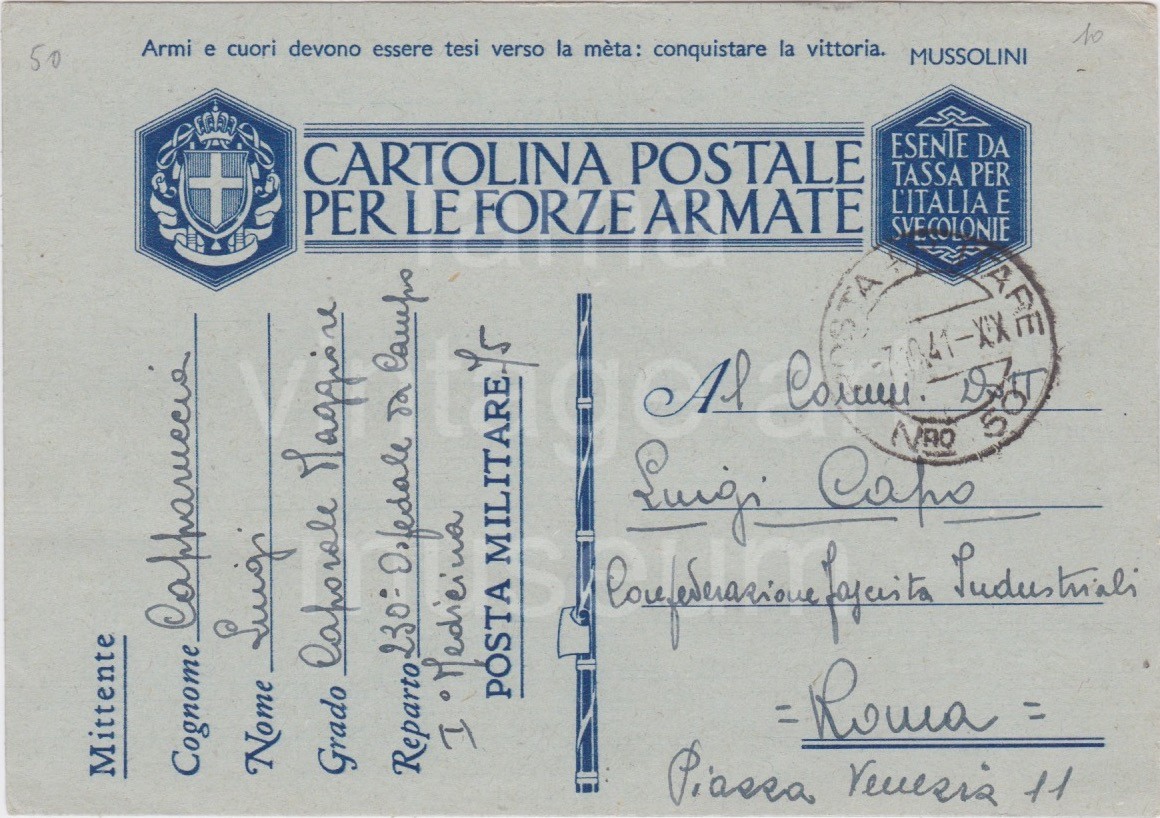 50
10
Armi e cuori devono essere tesi verso la mèta: conquistare la vittoria. MUSSOLINI
CARTOLINA POSTALE
PER LE FORZE ARMATE
ESENTE DA
TASSA PER
L'ITALIA E
SVE COLONIE
POSTA MILITARE
41-XIX
Nro
Mittente
Cognome Capparuccia
Nome Luigi
Grado Caporale Maggiore
Reparto 230° Ospedale da Campo
I° Medicina
POSTA MILITARE 75
Al Comm. Dott
Luigi Capo
Confederazione fascista Industriali
= Roma =
Piazza Venezia 11
fama
vintage art
museum